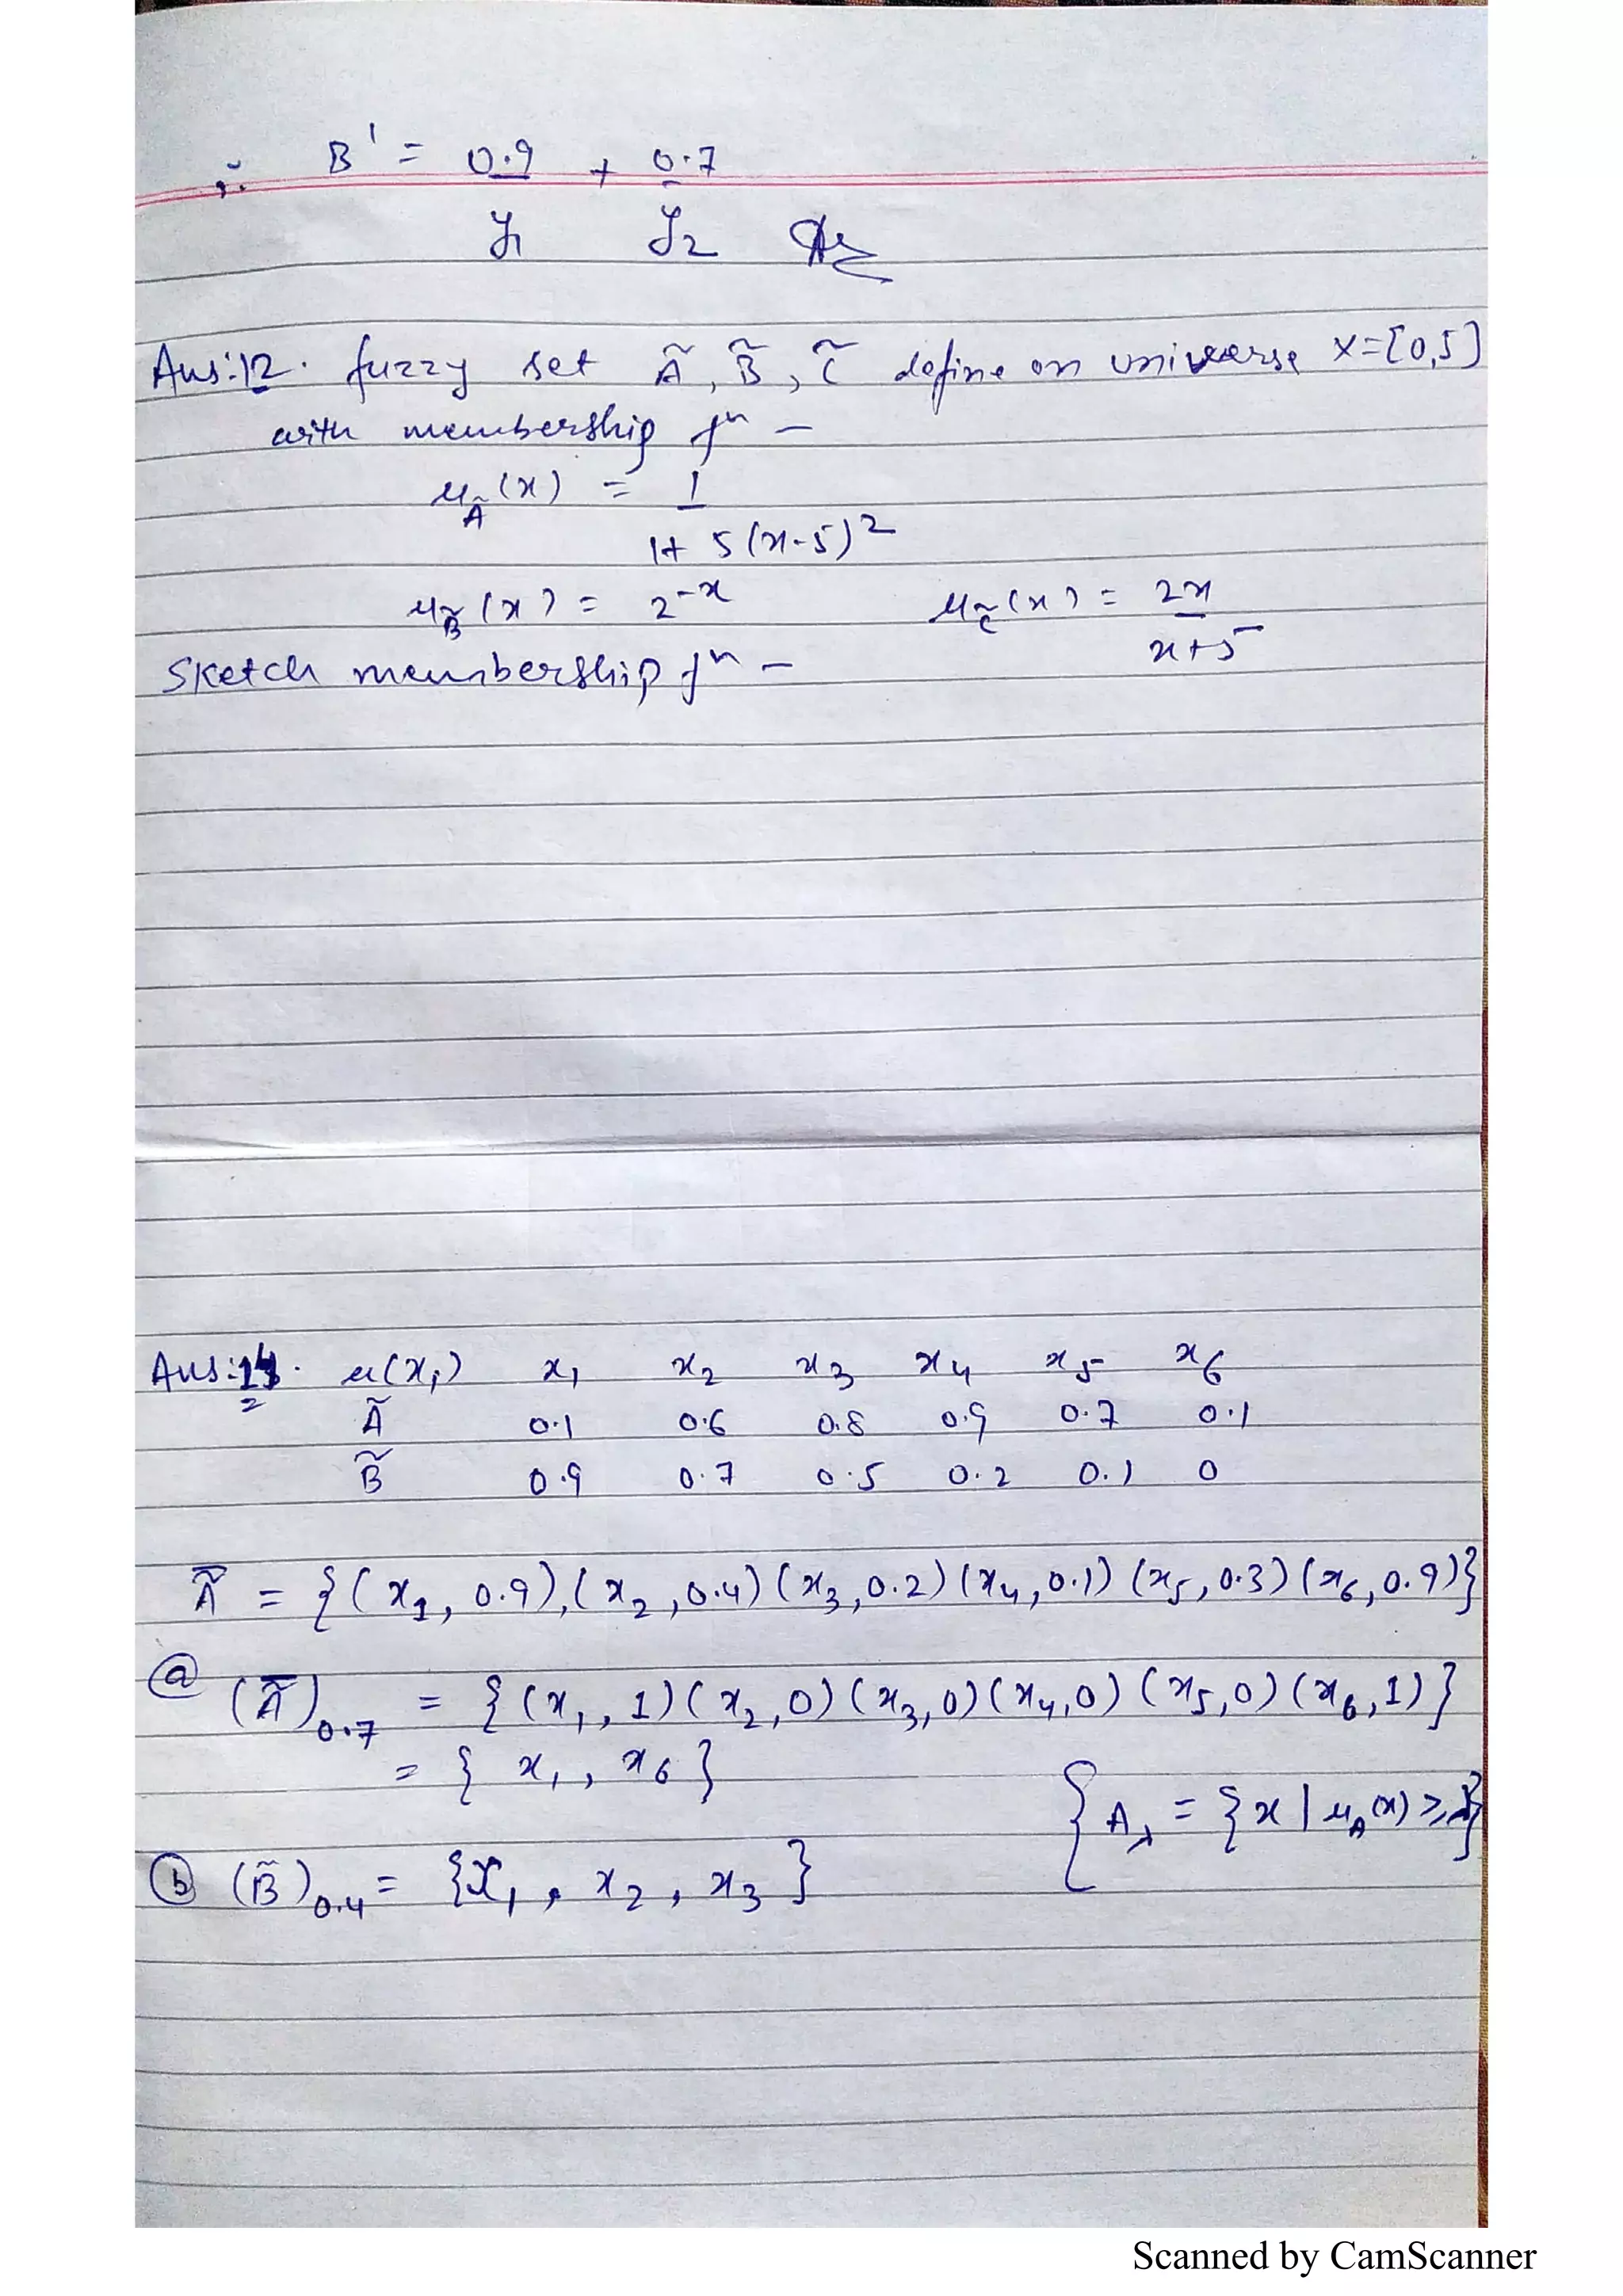 ∴ B' = 0.9 + 0.7
y1 y2
Ans:12. fuzzy set Ã, B̃, C̃ define on universe X=[0,5]
with membership fn –
μÃ(x) = 1
1+ 5(x-5)²
μB̃(x) = 2^-x μC̃(x) = 2x
x+5
Sketch membership fn –
Ans:14. μ(xi) x1 x2 x3 x4 x5 x6
Ã 0.1 0.6 0.8 0.9 0.7 0.1
B̃ 0.9 0.7 0.5 0.2 0.1 0
Ã̅ = {(x1, 0.9),(x2,0.4)(x3,0.2)(x4,0.1)(x5,0.3)(x6,0.9)}
(a) (Ã̅)0.7 = {(x1, 1)(x2,0)(x3,0)(x4,0)(x5,0)(x6,1)}
= {x1, x6}
{Aλ = {x | μA(x) ≥ λ}
(b) (B̃)0.4 = {x1, x2, x3}
Scanned by CamScanner